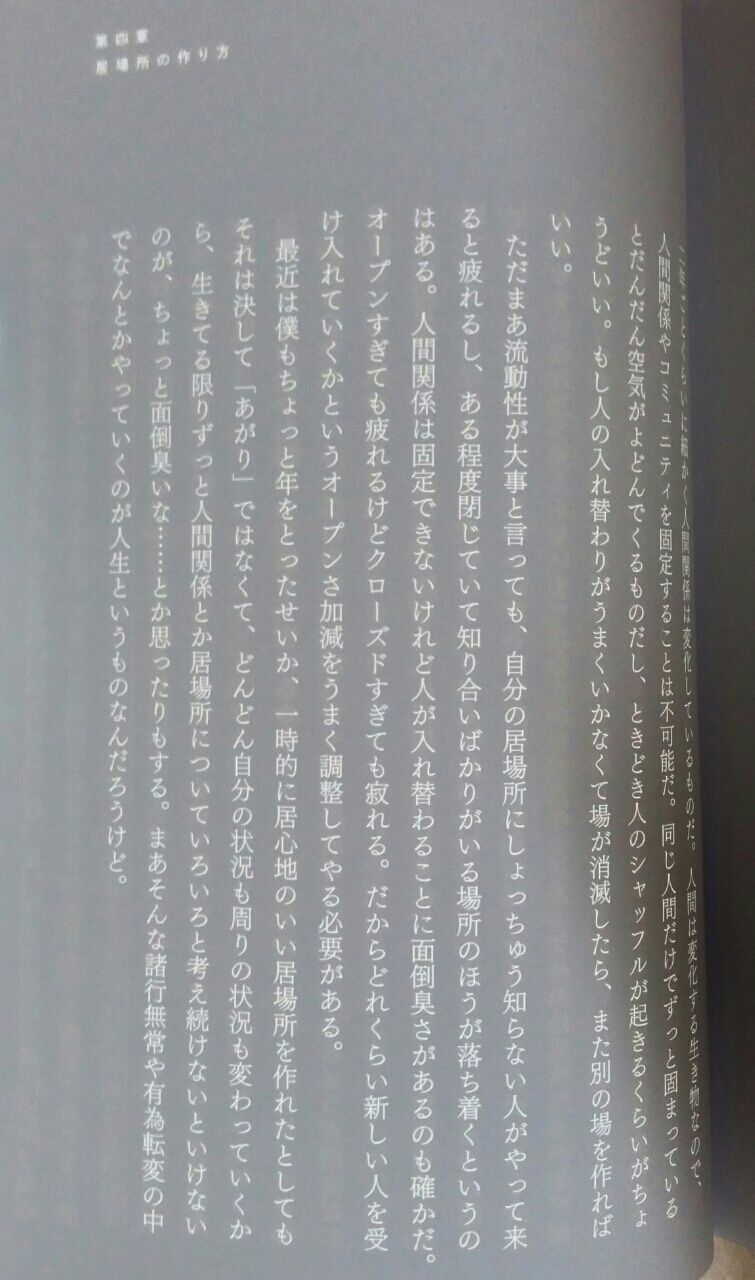 第四章
居場所の作り方
二年ごとくらいに細かく人間関係は変化しているものだ。人間は変化する生き物なので、
人間関係やコミュニティを固定することは不可能だ。同じ人間だけでずっと固まっている
とだんだん空気がよどんでくるものだし、ときどき人のシャッフルが起きるくらいがちょ
うどいい。もし人の入れ替わりがうまくいかなくて場が消滅したら、また別の場を作れば
いい。
ただまあ流動性が大事と言っても、自分の居場所にしょっちゅう知らない人がやって来
ると疲れるし、ある程度閉じていて知り合いばかりがいる場所のほうが落ち着くというの
はある。人間関係は固定できないけれど人が入れ替わることに面倒臭さがあるのも確かだ。
オープンすぎても疲れるけどクローズドすぎても寂れる。だからどれくらい新しい人を受
け入れていくかというオープンさ加減をうまく調整してやる必要がある。
最近は僕もちょっと年をとったせいか、一時的に居心地のいい居場所を作れたとしても
それは決して「あがり」ではなくて、どんどん自分の状況も周りの状況も変わっていくか
ら、生きてる限りずっと人間関係とか居場所についていろいろと考え続けないといけない
のが、ちょっと面倒臭いな……とか思ったりもする。まあそんな諸行無常や有為転変の中
でなんとかやっていくのが人生というものなんだろうけど。